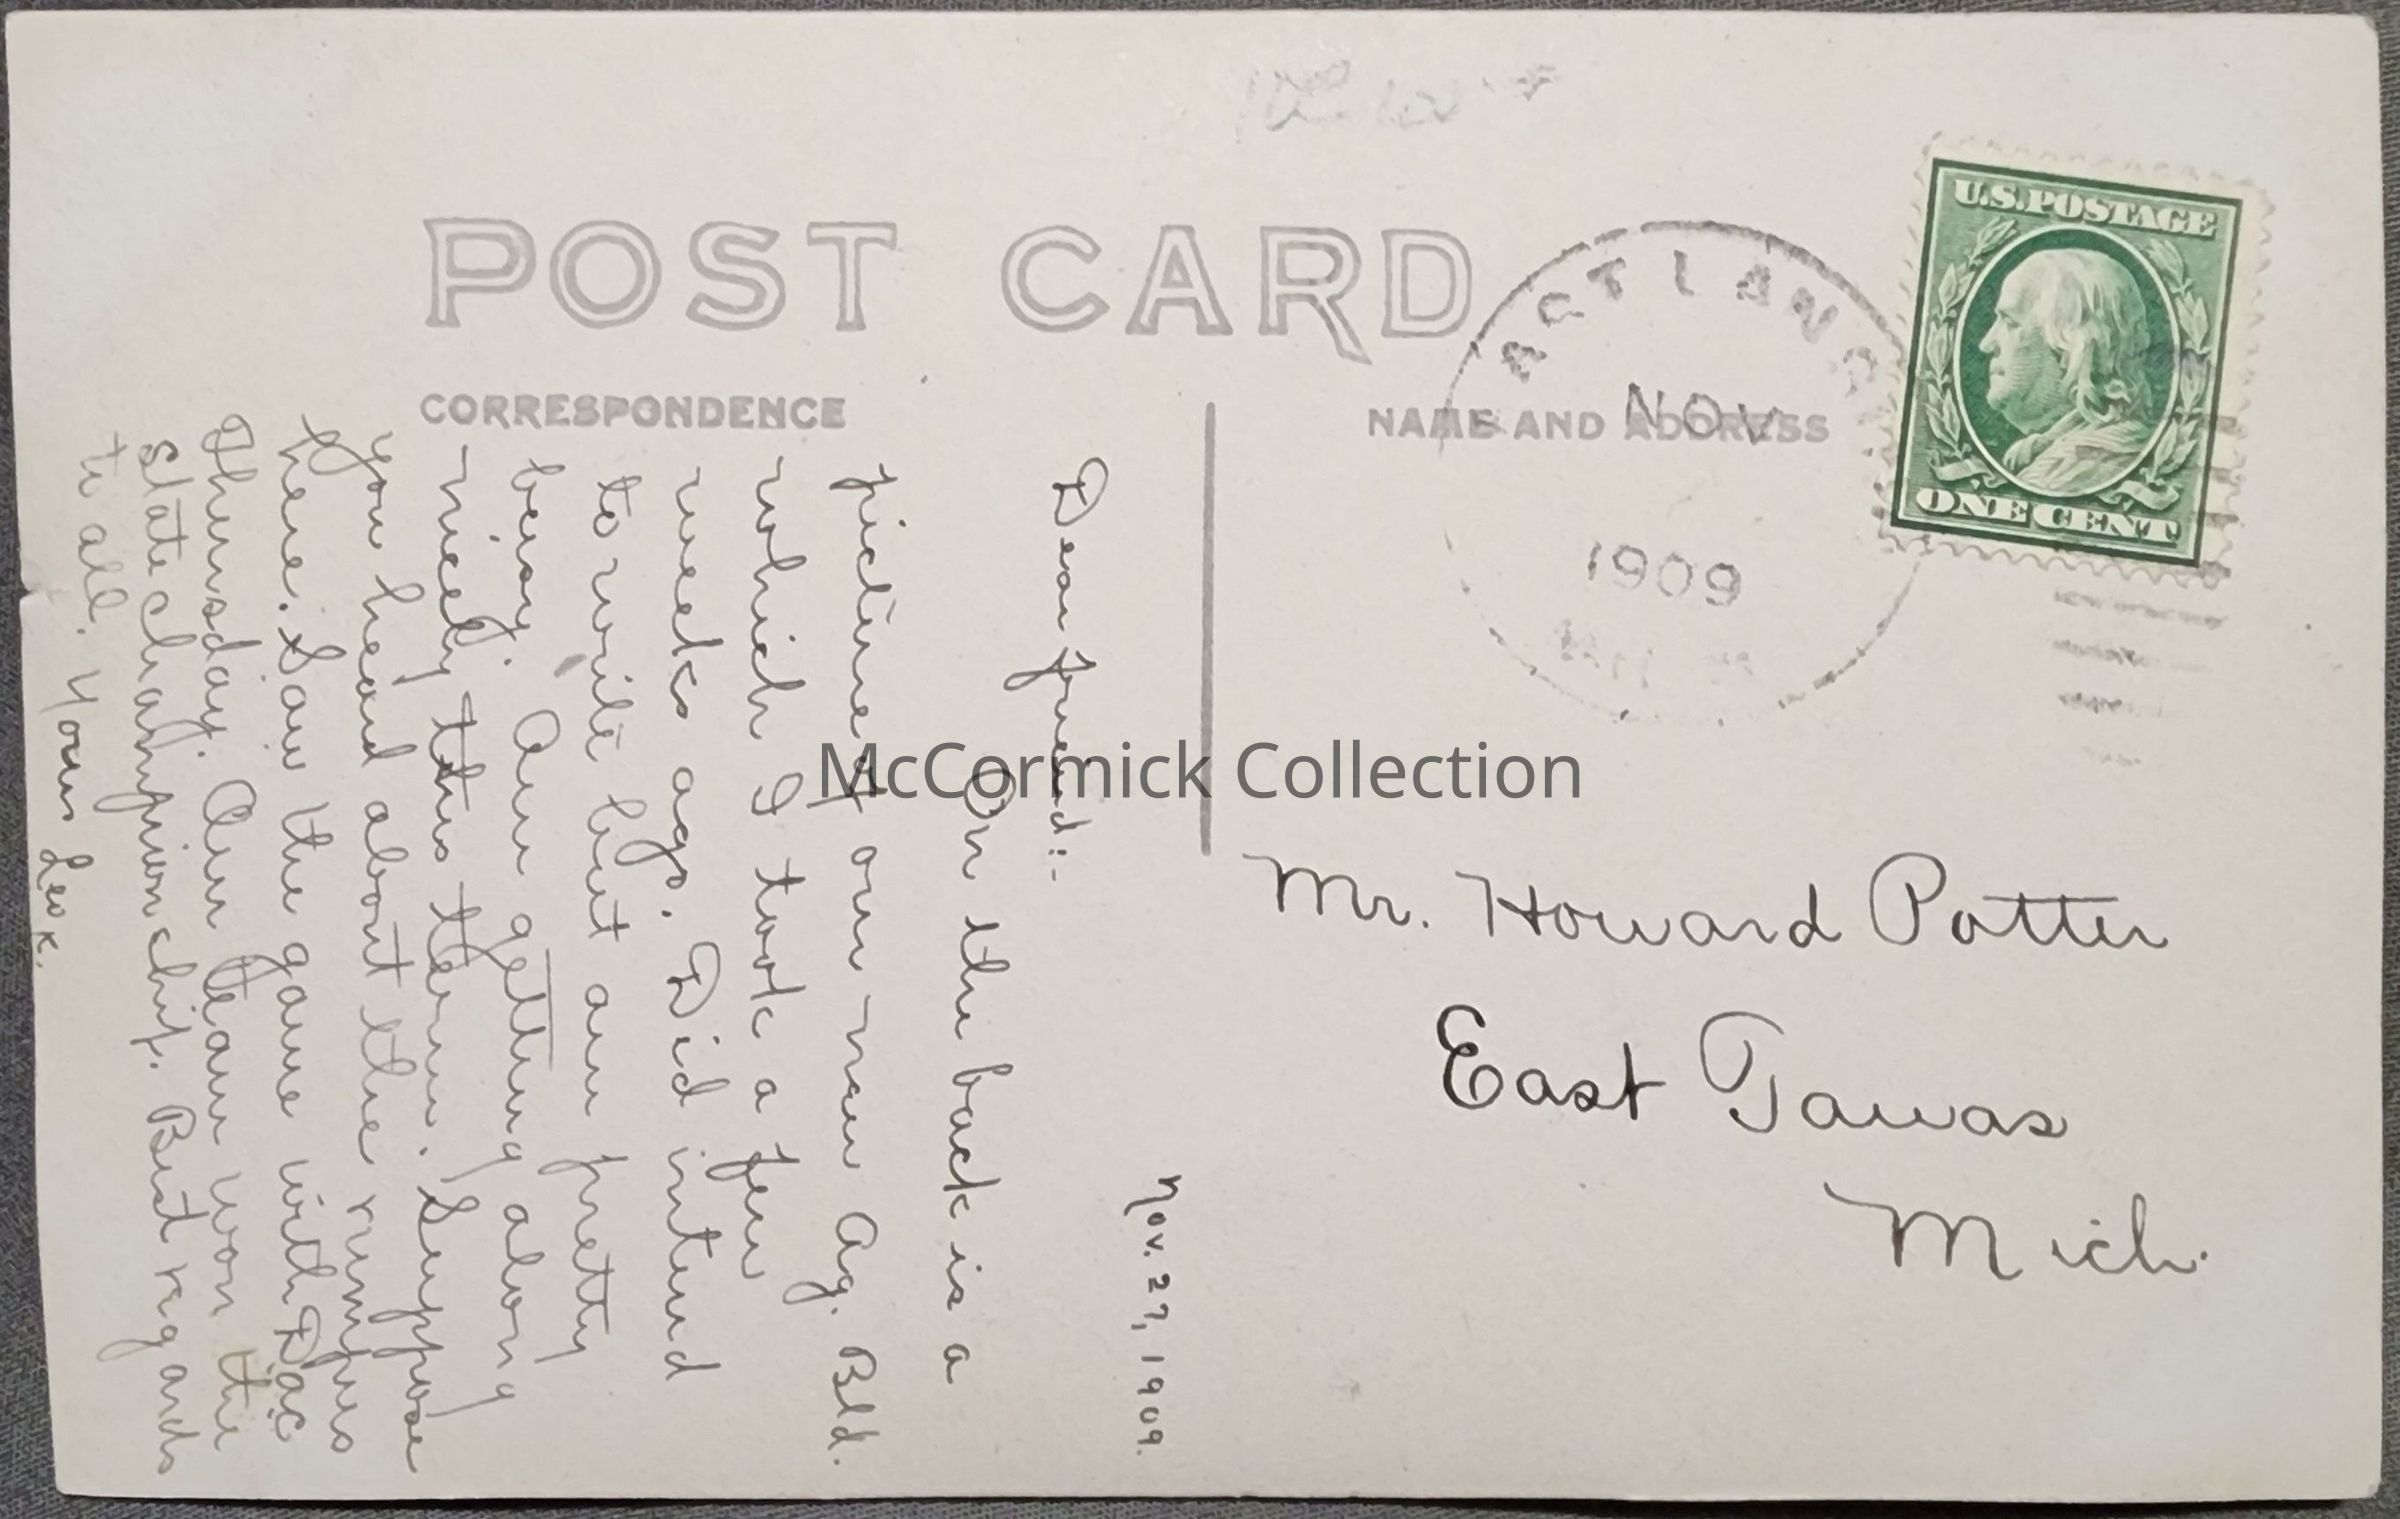 POST CARD
CORRESPONDENCE
NAME AND ADDRESS
U.S. POSTAGE
ONE CENT
NOV
1909
Mr. Howard Potter
East Tawas
Mich.
Nov. 27, 1909.
Dear friend:-
On the back is a
picture of our new Ag. Bld.
which I took a few
weeks ago. Did intend
to write but am pretty
busy. Am getting along
nicely this term. Suppose
you heard about the rumpus
here. Saw the game with D.A.C
Thursday. Our team won the
state championchip. Best regards
to all. Yours Leo K.
McCormick Collection